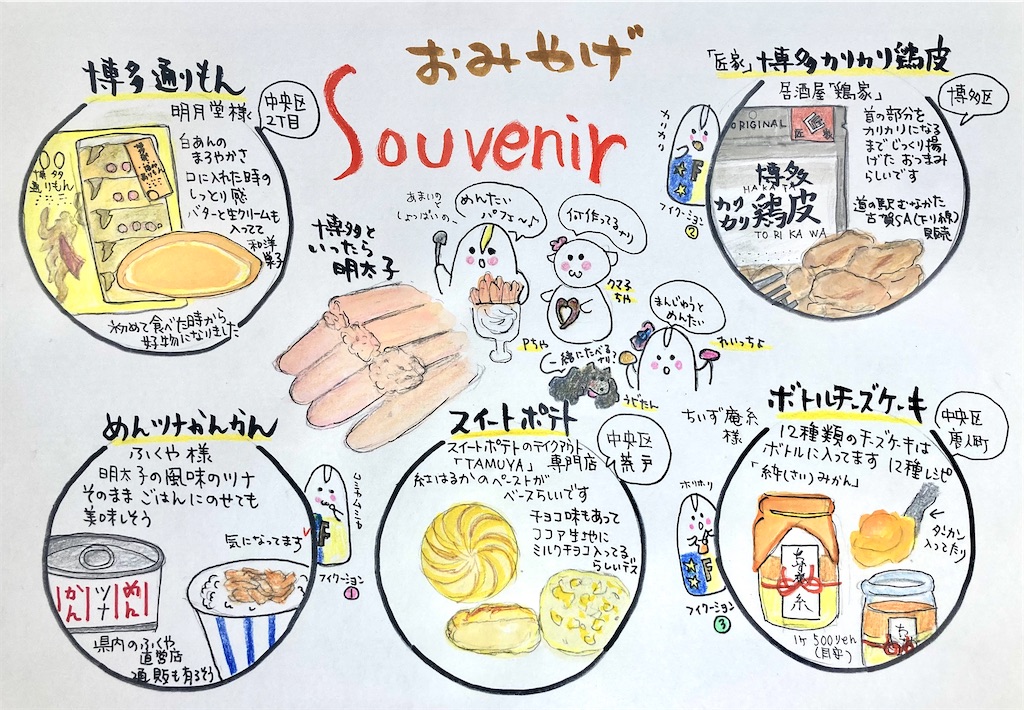 おみやげ
Souvenir
博多通りもん
明月堂様
中央区
2丁目
白あんの
まろやかさ
口に入れた時の
しっとり感
バターと生クリームも
入ってて
和洋
菓子
博多
通りもん
初めて食べた時から
好物になりました
「匠家」博多カリカリ鶏皮
居酒屋「鶏家」
博多区
首の部分を
カリカリになる
までじっくり揚
げた おつまみ
らしいです
道の駅 むなかた
古賀SA(下り線)
販売
ORIGINAL
匠家
博多
HAKATA
カリカリ
鶏皮
TORIKAWA
カリカリ
フィクーション
②
博多と
いったら
明太子
あまいの
しょっぱいの、
めんたい
パフェ〜♪
何作ってるナリ
クマ子
ちゃ
Pちゃ
まんじゅうと
めんたい
れいっちょ
一緒にたべるナリ?
うどたん
めんツナかんかん
ふくや 様
明太子の風味のツナ
そのまま ごはんにのせても
美味しそう
気になってます
めん
ツナ
かん
県内のふくや
直営店
通販も有るそう
フィクーション
①
スイートポテト
スイートポテトのテイクアウト
「TAMUYA」 専門店
中央区
荒戸
紅はるかのペーストが
ベースらしいです
チョコ味もあって
ココア生地に
ミルクチョコ入ってる
らしいデス
ボトルチーズケーキ
ちいず庵糸
様
中央区
唐人町
12種類のチーズケーキは
ボトルに入ってます 12種レシピ
「絆(さい)みかん」
ダイカン
入ってたり
ホリホリ
フィクーション
③
1ケ 500yen
(目安)